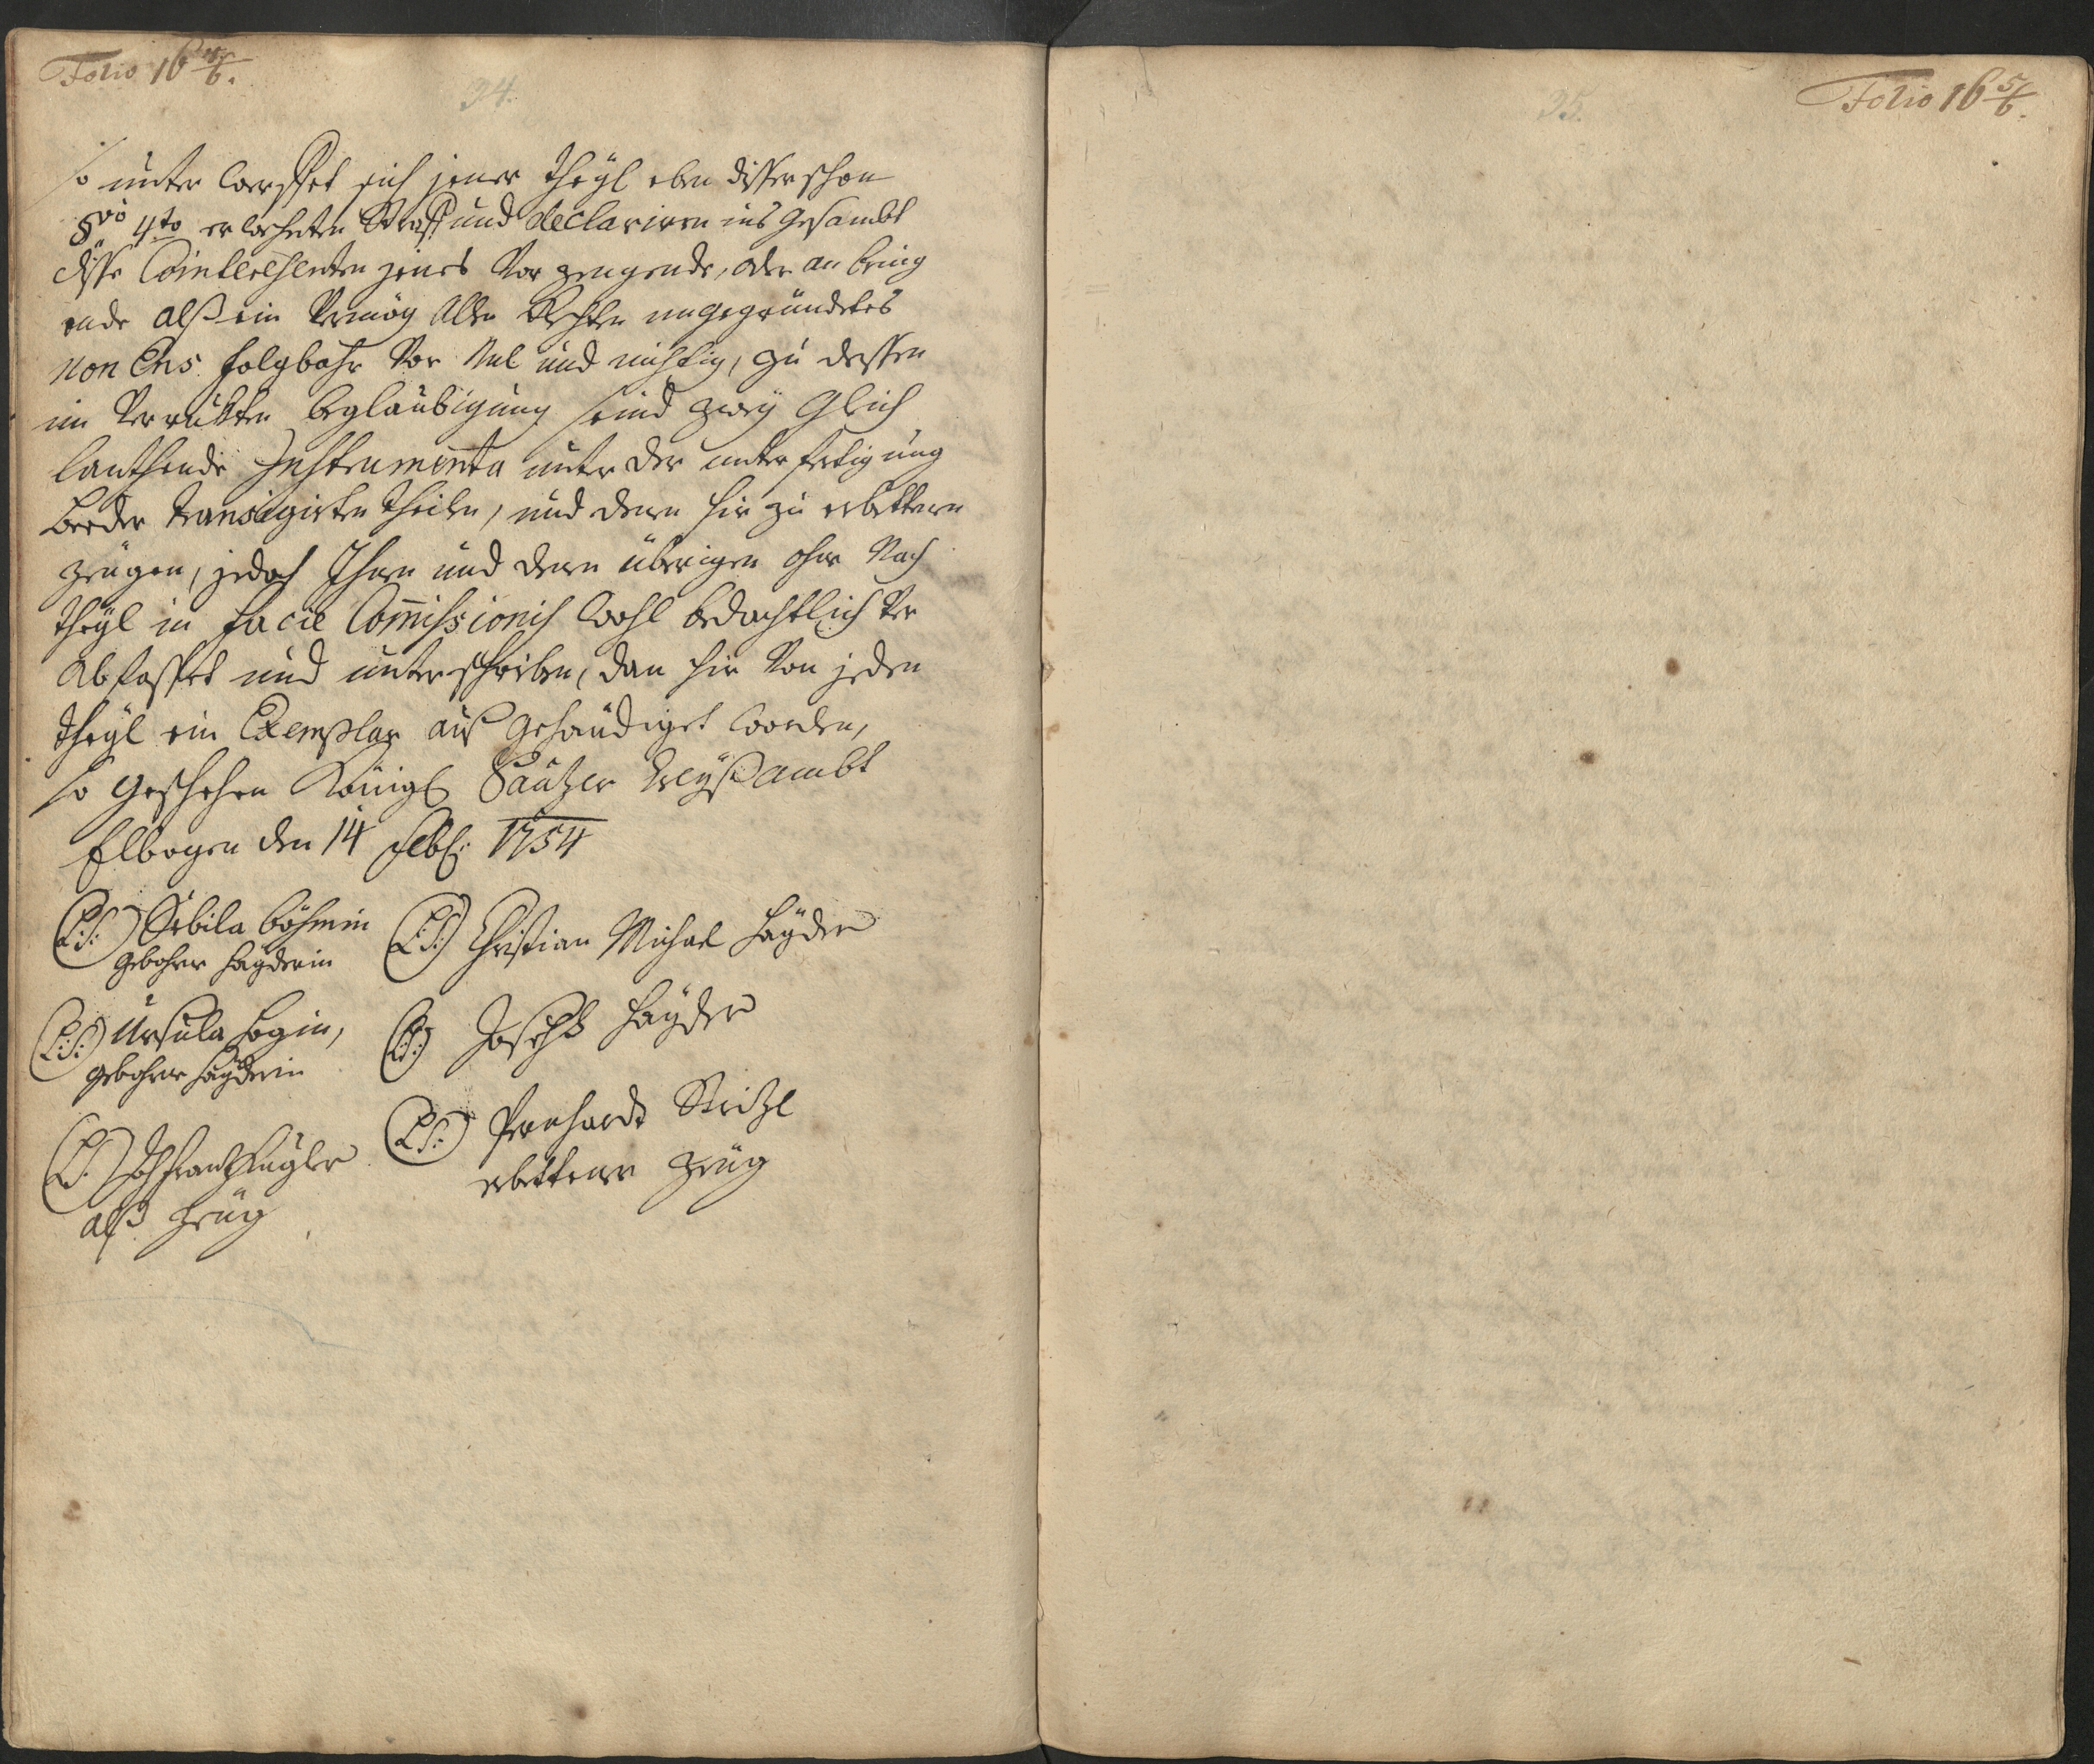 Folio 16 4/6.
34.
so unter werffet sich jener theyl eben disser schon
§vo 4to erwehnten Straff und declariren ins gesambt
disse Cointeressenten jenes Vor zeugende, oder an bring
ende alß ein Vermög Allen Rechten ungegründetes
non Ens folgbahr Vor Nul und nichtig, zu dessen
un Ver ruckten beglaubigung seind zwey Gleich
lauthende Instrumenta unter der unterfertigung
beeder transigirten theilen, und denen hir zu erbettenen
Zeugen, jedoch Ihnen und denen übrigen ohne Nach
theyl in facie Commissionis wohl bedachtlich Ver
Abfasset und unterschriben, dan hie Von jeden
theyl ein Exemplar auß gehändiget worden,
so geschehen Königl Saatzer Creyß ambt
Elbogen den 14 1754
(L:S:) Sibila böhmin
gebohrne Hayderin
(L:S:) Christian Michael Hayder
(L:S:) Ursula
gebohrne Hayderin
(L:S:) Joseph Hayder
(L:S:) als Zeug
(L:S:) Bernhardt
erbettener Zeug
35.
Folio 16 5/6.